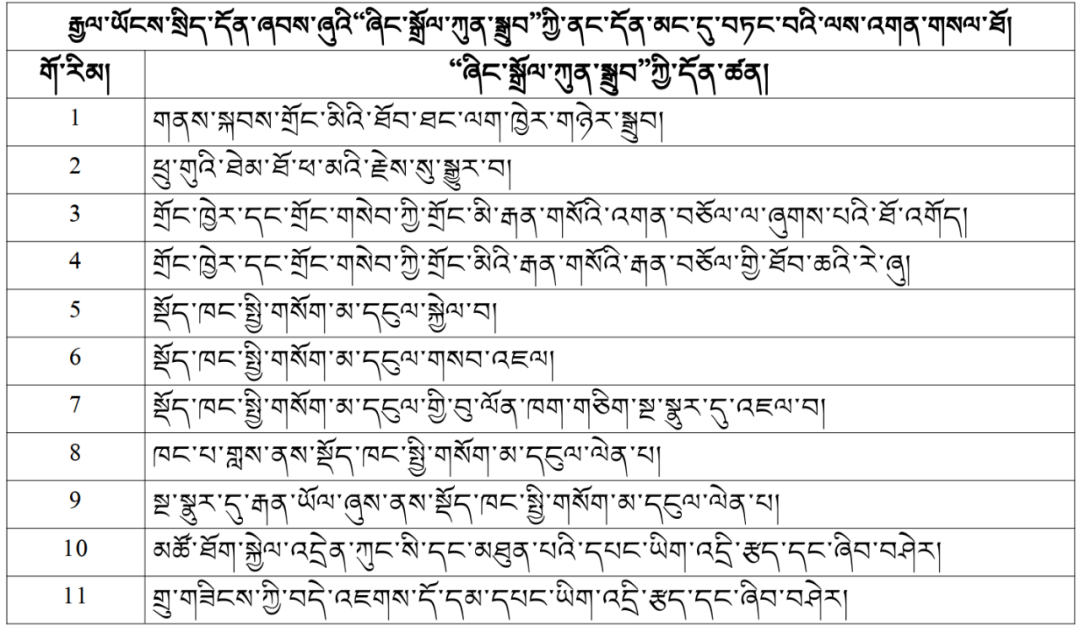 རྒྱལ་ཡོངས་སྲིད་དོན་ཞབས་ཞུའི“ཞིང་སྒྲོལ་ཀུན་སྒྲུབ”ཀྱི་ནང་དོན་མང་དུ་བཏང་བའི་ལས་འགན་གསལ་ཐོ།
གོ་རིམ། “ཞིང་སྒྲོལ་ཀུན་སྒྲུབ”ཀྱི་དོན་ཚན།
1 གནས་སྐབས་གྲོང་མིའི་ཐོབ་ཐང་ལག་ཁྱེར་གཉེར་སྒྲུབ།
2 ཕྲུ་གུའི་ཐེམ་ཐོ་ཕ་མའི་རྗེས་སུ་སྒྱུར་བ།
3 གྲོང་ཁྱེར་དང་གྲོང་གསེབ་ཀྱི་གྲོང་མི་རྒན་གསོའི་འགན་བཅོལ་ལ་ཞུགས་པའི་ཐོ་འགོད།
4 གྲོང་ཁྱེར་དང་གྲོང་གསེབ་ཀྱི་གྲོང་མིའི་རྒན་གསོའི་རྒན་བཅོལ་གྱི་ཐོབ་ཆའི་རེ་ཞུ།
5 སྡོད་ཁང་སྤྱི་གསོག་མ་དངུལ་སྐྱེལ་བ།
6 སྡོད་ཁང་སྤྱི་གསོག་མ་དངུལ་གསབ་འཇལ།
7 སྡོད་ཁང་སྤྱི་གསོག་མ་དངུལ་གྱི་བུ་ལོན་ཁག་གཅིག་སྔ་སྣུར་དུ་འཇལ་བ།
8 ཁང་པ་གླས་ནས་སྡོད་ཁང་སྤྱི་གསོག་མ་དངུལ་ལེན་པ།
9 སྔ་སྣུར་དུ་རྒན་ཡོལ་ཞུས་ནས་སྡོད་ཁང་སྤྱི་གསོག་མ་དངུལ་ལེན་པ།
10 མཚོ་ཐོག་སྐྱེལ་འདྲེན་ཀུང་སི་དང་མཐུན་པའི་དཔང་ཡིག་འདྲི་རྩད་དང་ཞིབ་བཤེར།
11 གྲུ་གཟིངས་ཀྱི་བདེ་འཇགས་དོ་དམ་དཔང་ཡིག་འདྲི་རྩད་དང་ཞིབ་བཤེར།